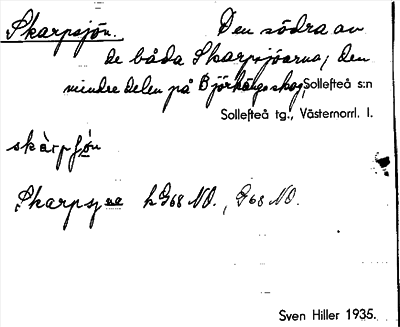 Skarpsjön. Den södra av
de båda Skarpsjöarna, den
mindre delen på Björkängs skog, Sollefteå s:n
Sollefteå tg., Västernorrl. l.
skàrpʃón
Skarpsjön k G68 NO., G68 NO.
Sven Hiller 1935.